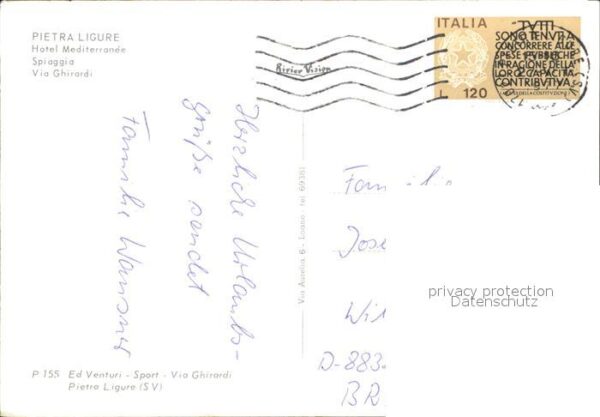 PIETRA LIGURE
Hotel Mediterranée
Spiaggia
Via Ghirardi
ITALIA
TUTTI
SONO TENUTI A
CONCORRERE ALLE
SPESE PUBBLICHE
IN RAGIONE DELLA
LORO CAPACITÀ
CONTRIBUTIVA
L. 120
Herzliche Urlaubs-
grüße sendet
Familie
Via Aurelia 6 - Loano - tel. 69381
Famil
Jose
Wil
D-883
BR
privacy protection
Datenschutz
P 155 Ed Venturi - Sport - Via Ghirardi
Pietra Ligure (SV)